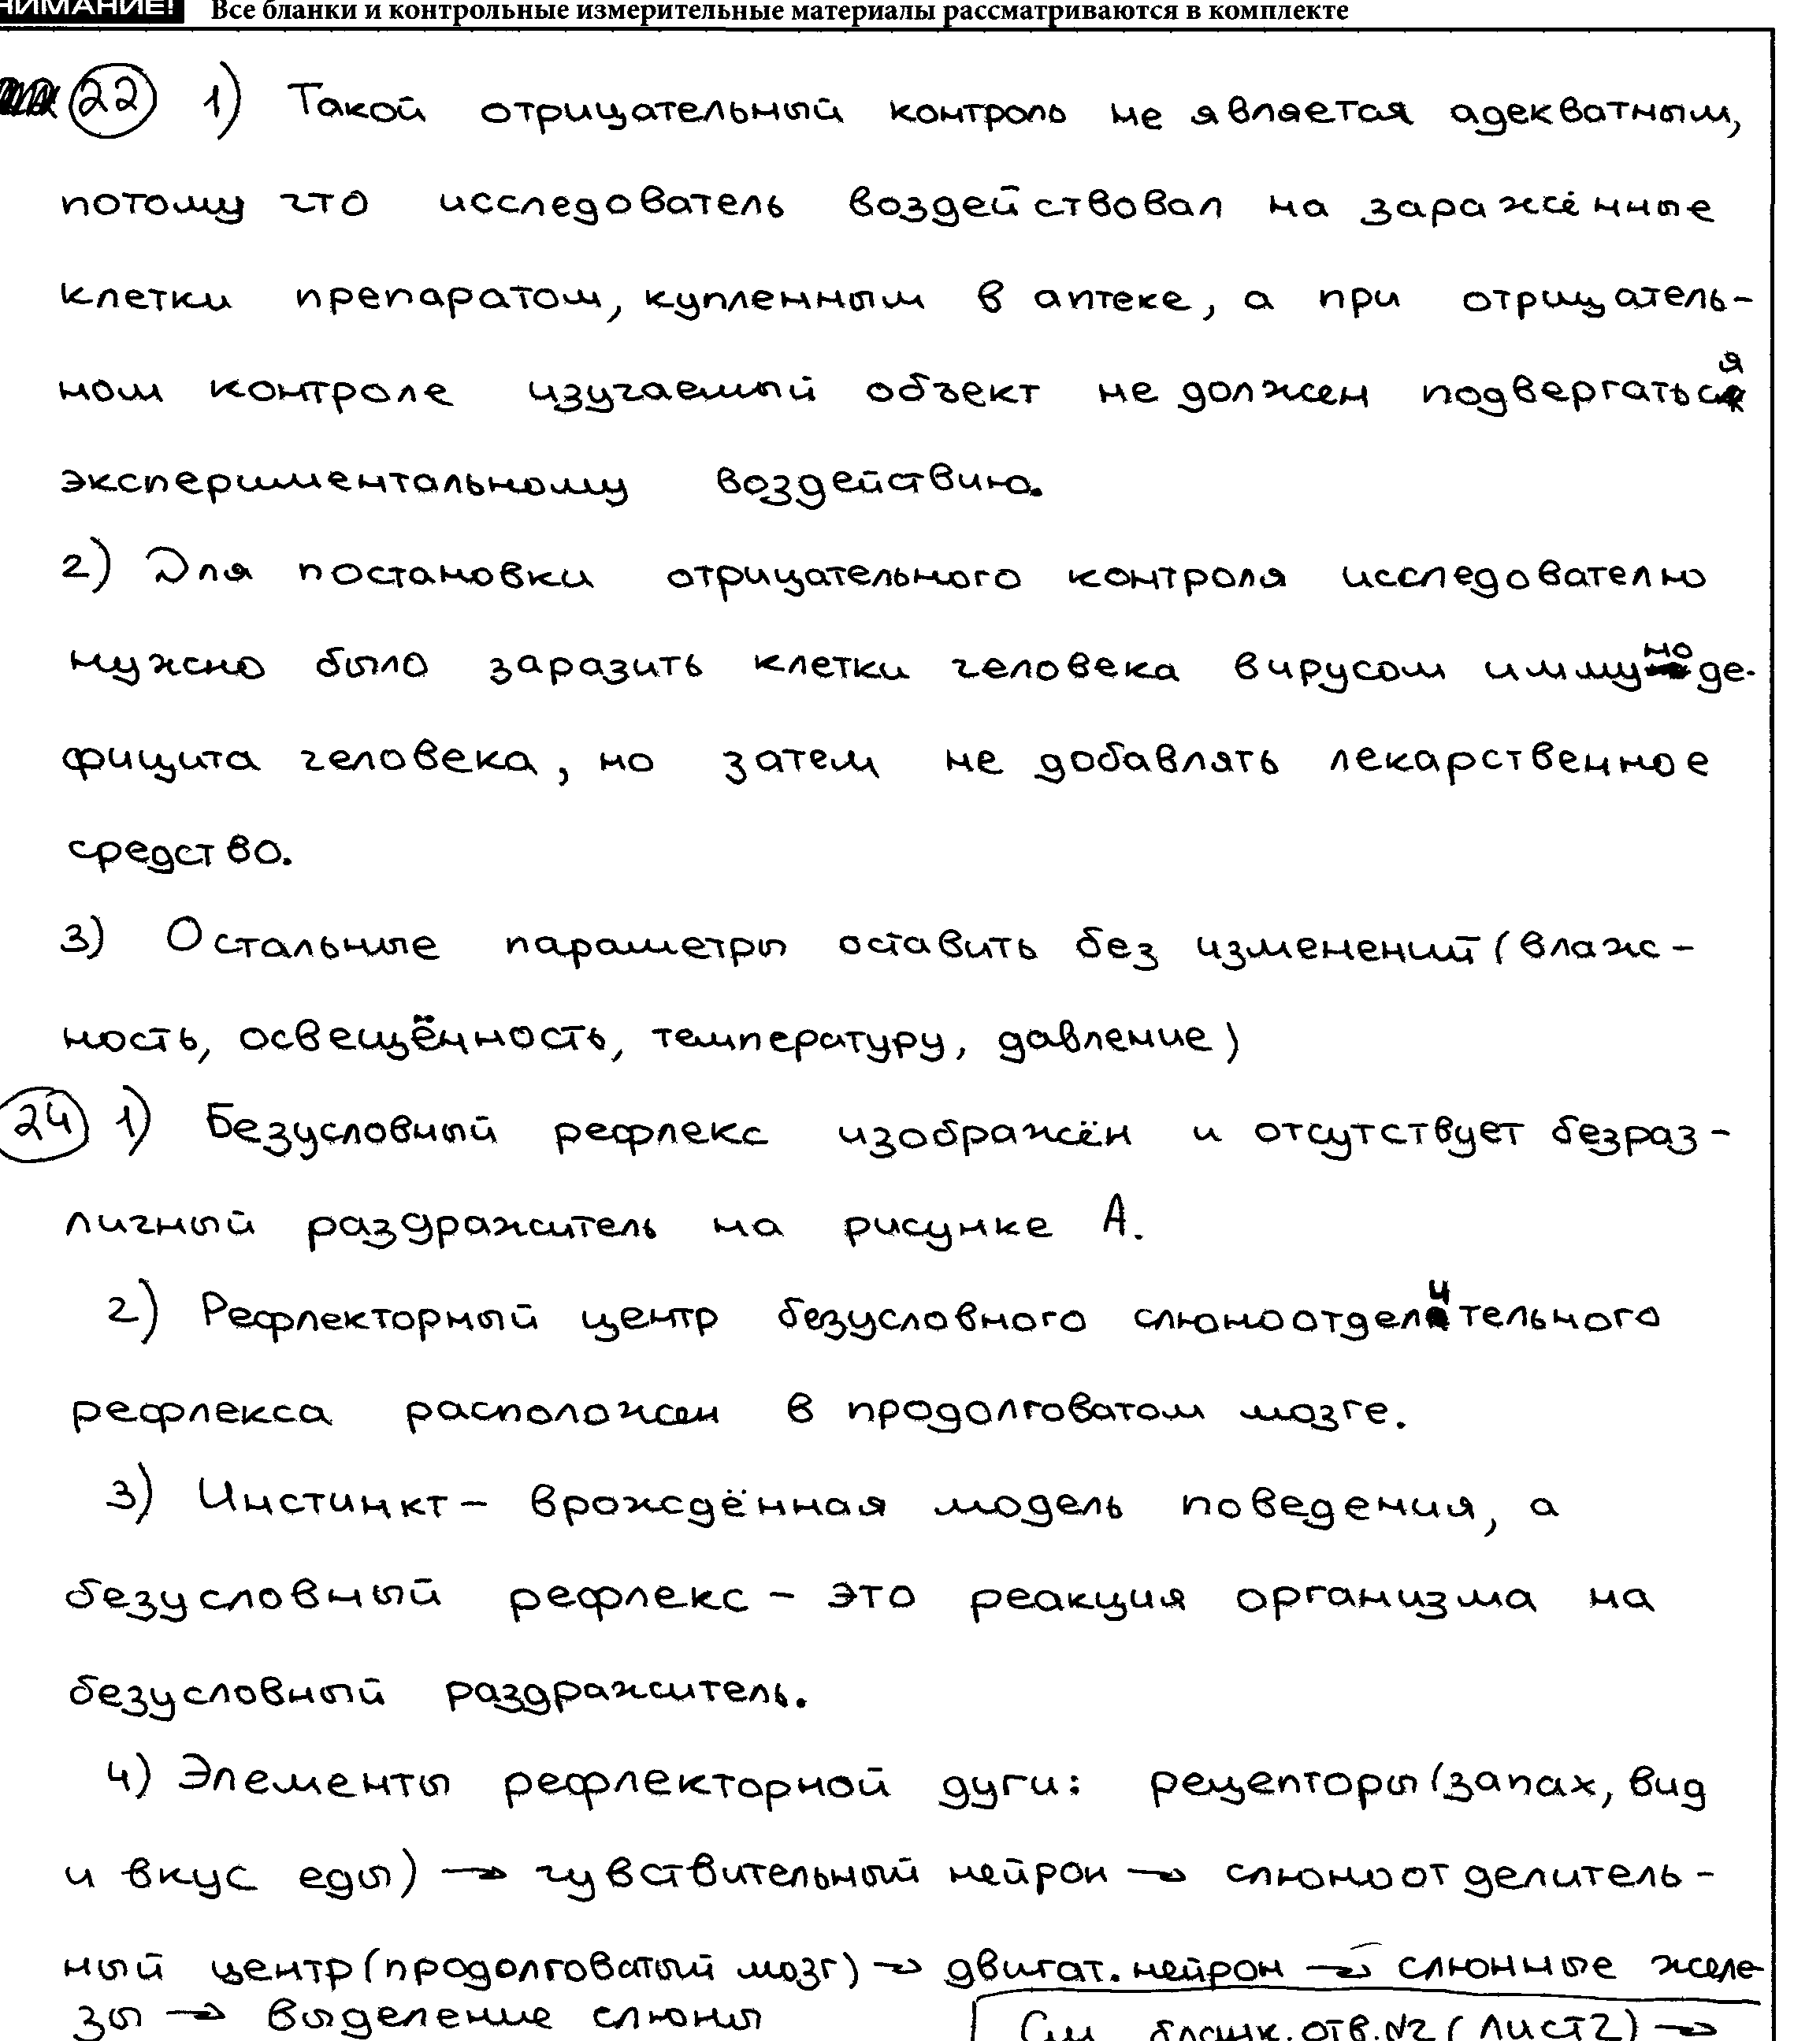 НИМАНИЕ! Все бланки и контрольные измерительные материалы рассматриваются в комплекте
22 1) Такой отрицательный контроль не является адекватным,
потому что исследователь воздействовал на заражённые
клетки препаратом, купленным в аптеке, а при отрицатель-
ном контроле изучаемый объект не должен подвергаться
экспериментальному воздействию.
2) Для постановки отрицательного контроля исследователю
нужно было заразить клетки человека вирусом иммуноде-
фицита человека, но затем не добавлять лекарственное
средство.
3) Остальные параметры оставить без изменений (влаж-
ность, освещённость, температуру, давление)
24 1) Безусловный рефлекс изображён и отсутствует безраз-
личный раздражитель на рисунке А.
2) Рефлекторный центр безусловного слюноотделительного
рефлекса расположен в продолговатом мозге.
3) Инстинкт - врождённая модель поведения, а
безусловный рефлекс - это реакция организма на
безусловный раздражитель.
4) Элементы рефлекторной дуги: рецепторы (запах, вид
и вкус еды) → чувствительный нейрон → слюноотделитель-
ный центр (продолговатый мозг) → двигат. нейрон → слюнные желе-
зы → выделение слюны
См. бланк. отв. №2 (лист 2) →